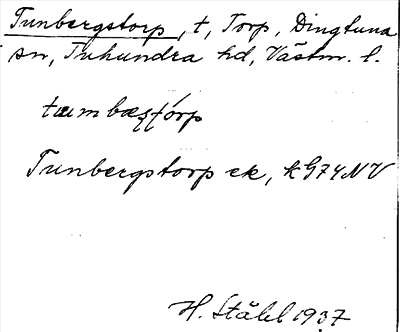 Tunbergstorp, t, Torp, Dingtuna
sn, Tuhundra hd, Västm. l.
Tunbergstorp ek, kG74NV
H. Ståhl 1937